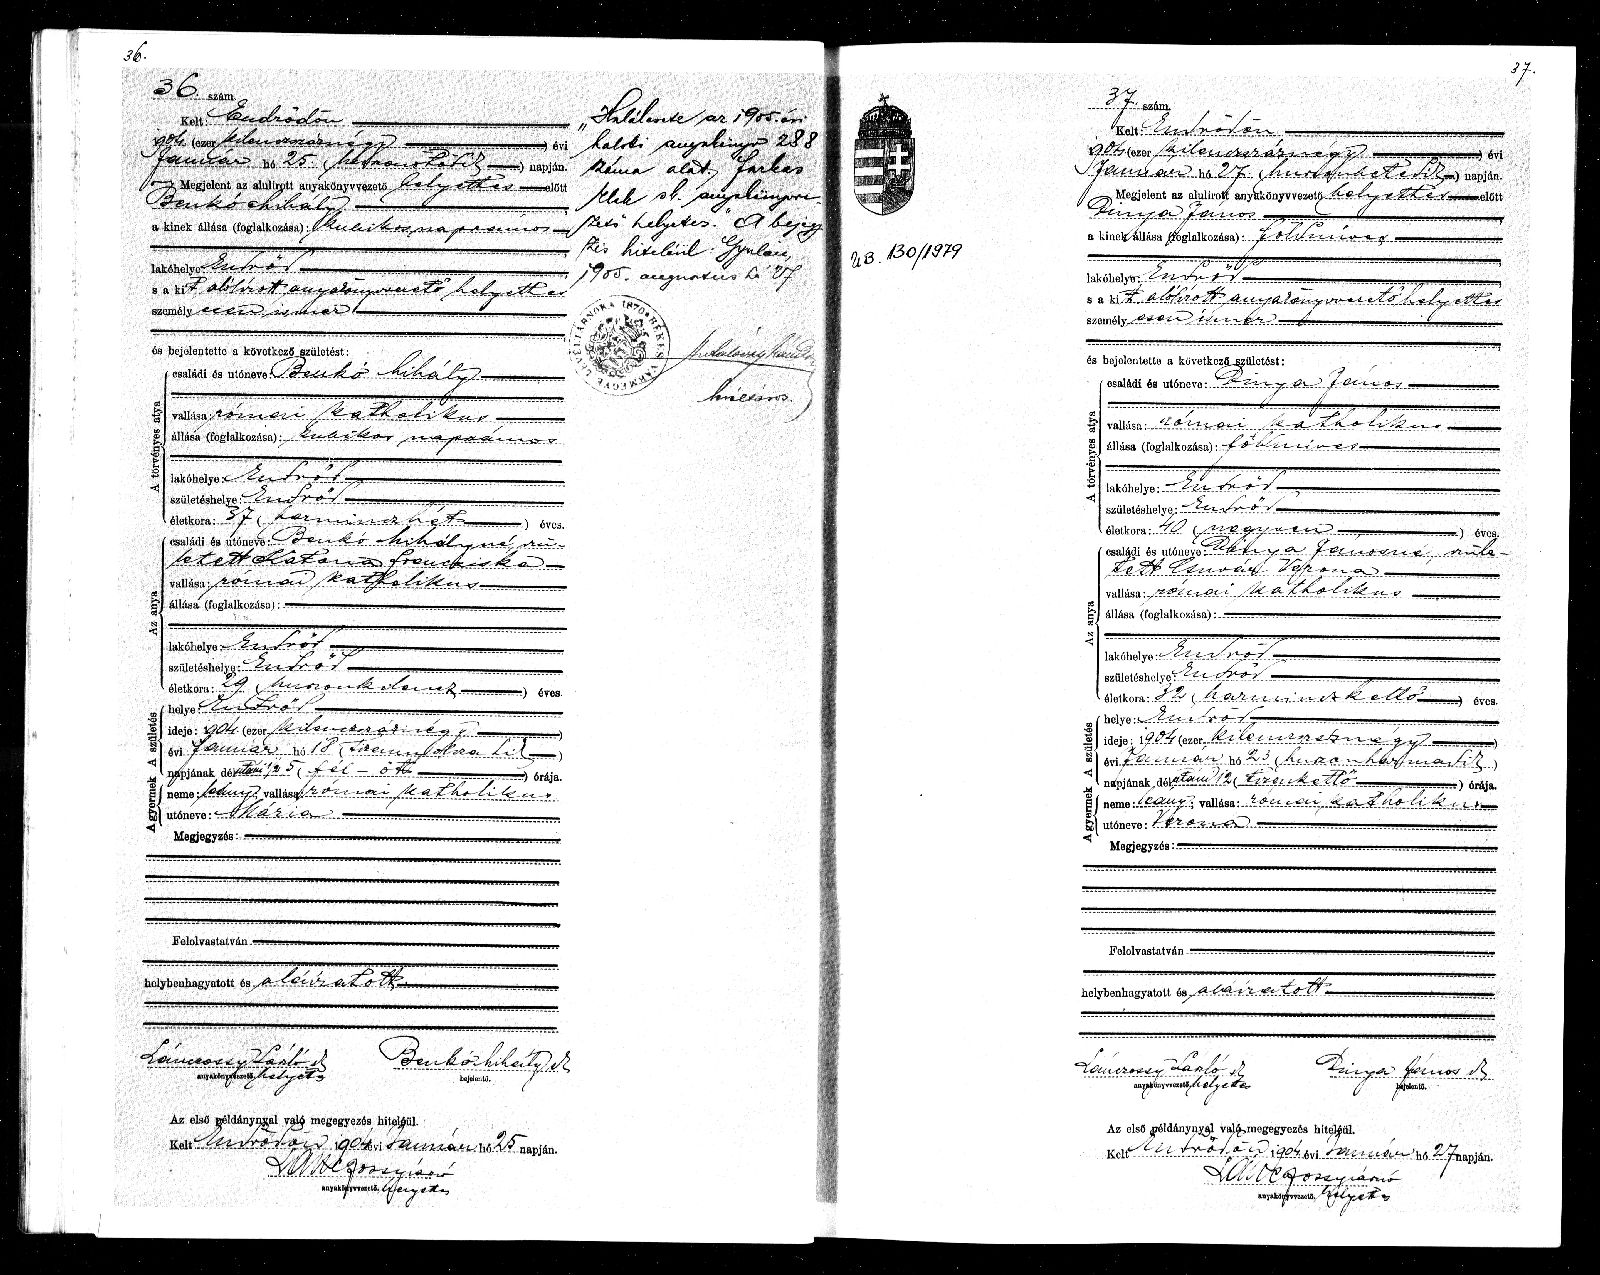 36.
36. szám.
Kelt: Endrődön
904 (ezer kilenczszáznégy) évi
Január hó 25. (huszonötödik) napján.
Megjelent az alulirott anyakönyvvezető helyettes előtt
Benkó Mihály
a kinek állása (foglalkozása): kubikos napszámos
lakóhelye: Endrőd
s a kit alólirott anyakönyvvezető helyettes
személyesen ismer
és bejelentette a következő születést:
A törvényes atya
családi és utóneve: Benkó Mihály
vallása: római katholikus
állása (foglalkozása): kubikos napszámos
lakóhelye: Endrőd
születéshelye: Endrőd
életkora: 37 (harminczhét) éves.
Az anya
családi és utóneve: Benkó Mihályné, szü-
letett Katona Francziska
vallása: római katholikus
állása (foglalkozása):
lakóhelye: Endrőd
születéshelye: Endrőd
életkora: 29 (huszonkilencz) éves.
A gyermek A születés
helye: Endrőd
ideje: 904 (ezer kilenczszáznégy)
évi Január hó 18 (tizennyolczadik)
napjának délutáni ½5 (fél-öt) órája.
neme: leány; vallása: római katholikus
utóneve: Mária
Megjegyzés:
Felolvastatván
helybenhagyatott és aláiratott
Lánczossy László sk Benkó Mihály sk
anyakönyvvezető helyettes bejelentő.
Az első példánynyal való megegyezés hiteléül.
Kelt Endrődön 1904 évi Január hó 25 napján.
anyakönyvvezető, helyettes
„Halálesete az 1905. évi
haloti anyakönyv 288
száma alatt. Farkas
sk. anyakönyvve-
zető helyettes." A bejegy-
zés hiteléül. Gyulán,
1905. augusztus hó 27
BÉKÉS VÁRMEGYE LEVÉLTÁRNOKA 1870
UB. 130/1979
37.
37. szám.
Kelt: Endrődön
904 (ezer kilenczszáznégy) évi
Január hó 27. (huszonhetedik) napján.
Megjelent az alulirott anyakönyvvezető helyettes előtt
Dinya János
a kinek állása (foglalkozása): földmives
lakóhelye: Endrőd
s a kit alólirott anyakönyvvezető helyettes
személyesen ismer
és bejelentette a következő születést:
A törvényes atya
családi és utóneve: Dinya János
vallása: római katholikus
állása (foglalkozása): földmives
lakóhelye: Endrőd
születéshelye: Endrőd
életkora: 40 (negyven) éves.
Az anya
családi és utóneve: Dinya Jánosné, szüle-
tett Verona
vallása: római katholikus
állása (foglalkozása):
lakóhelye: Endrőd
születéshelye: Endrőd
életkora: 32 (harminczkettő) éves.
A gyermek A születés
helye: Endrőd
ideje: 1904 (ezer kilenczszáznégy)
évi Január hó 23 (huszonharmadik)
napjának délutáni 12 (tizenkettő) órája.
neme: leány; vallása: római katholikus
utóneve: Verona
Megjegyzés:
Felolvastatván
helybenhagyatott és aláiratott
Lánczossy László sk Dinya János sk
anyakönyvvezető, helyettes bejelentő.
Az első példánynyal való megegyezés hiteléül.
Kelt Endrődön 1904 évi Január hó 27 napján.
anyakönyvvezető, helyettes